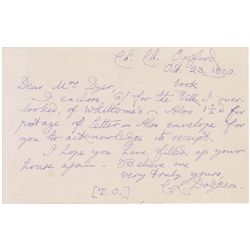 Ch. Ch. Oxford
Oct. 23. 1890.
Dear Mrs Dyer, book
I enclose 6/ for the bill I over-
looked, of Whittome's - Also 1½d for
postage of letter - Also envelope for
you to acknowledge its receipt.
I hope you have filled up your
house again - Believe me
very truly yours,
C L Dodgson.
[T.O.]